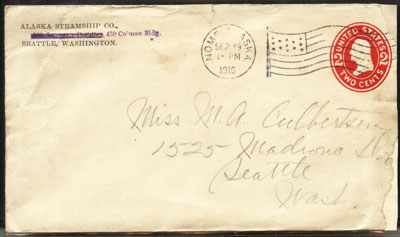 ALASKA STEAMSHIP CO.,
459 Colman Bldg.
SEATTLE, WASHINGTON.
NOME, ALASKA
SEP 19
1-PM
1915
UNITED STATES
2 2
TWO CENTS
Miss M.A. Culbertson
1525 Madrona
Seattle
Wash.